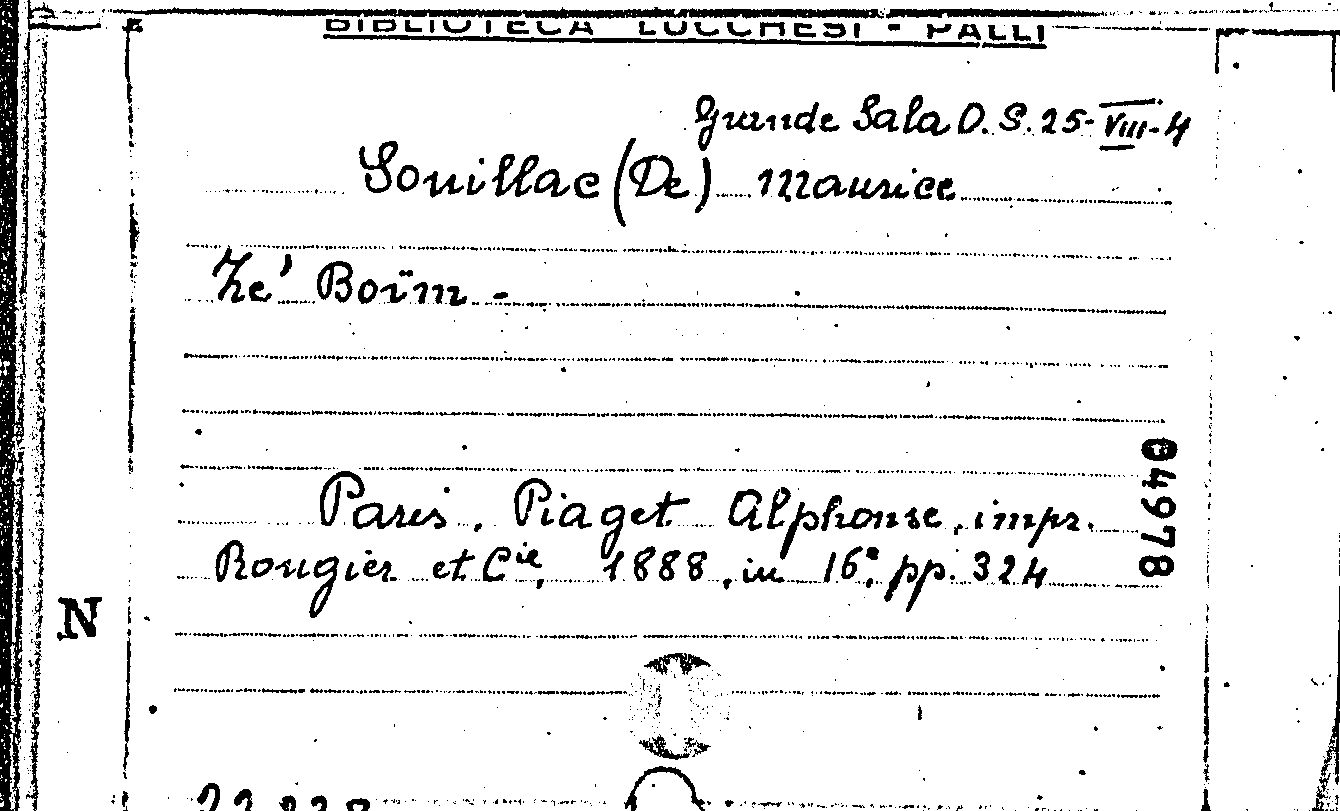 BIBLIOTECA LUCCHESI - PALLI
Grande Sala D. S. 25-VIII-4
Souillac (De) Maurice
Zé' Boïm -
04978
Paris, Piaget Alphonse, impr.
Rougier et Cie, 1888, in 16°, pp. 324
N